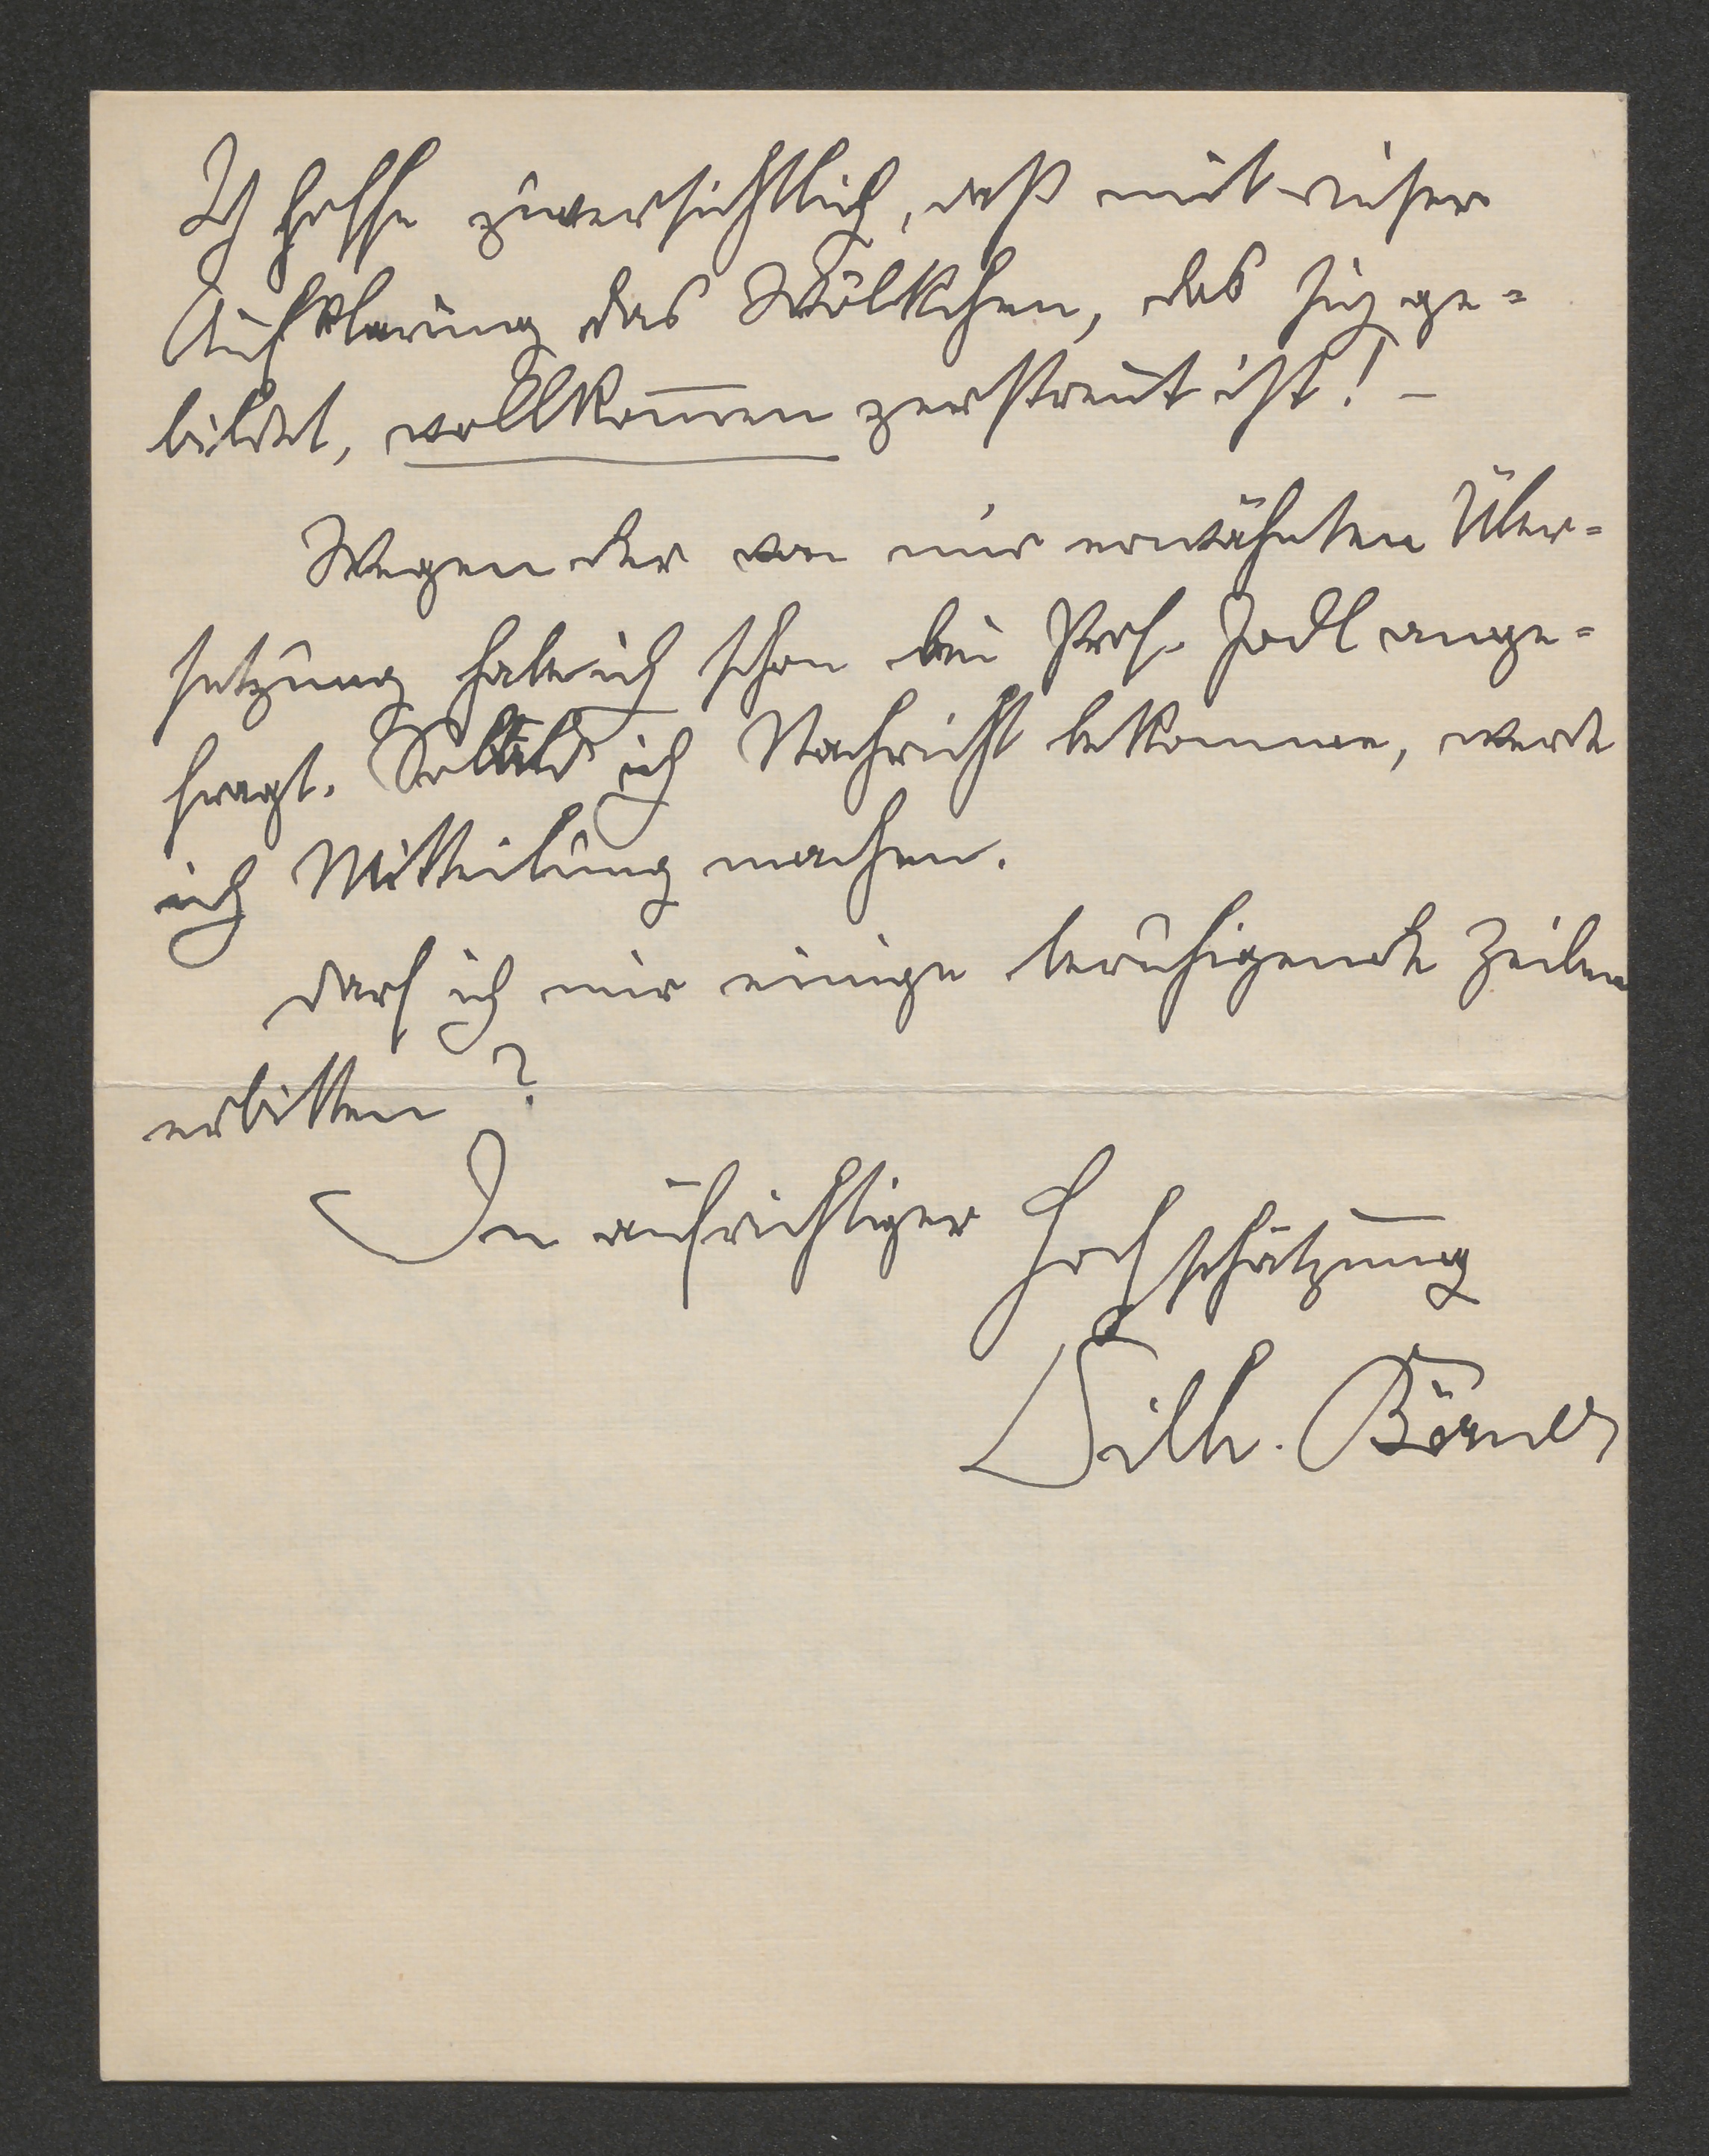 Ich hoffe zuversichtlich, daß mit dieser
Aufklärung das Wölkchen, das sich ge=
bildet, vollkom̅en zerstreut ist! –
Wegen der von mir erwähnten Über=
setzung habe ich schon bei Prof. Jodl ange=
fragt. Sobald ich Nachricht bekomme, werde
ich Mitteilung machen.
Darf ich mir einige beruhigende Zeilen
erbitten?
In aufrichtiger Hochschätzung
Wilh. Börner